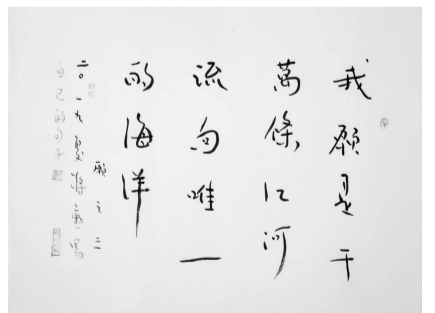 我願是千
萬條江河
流向唯一
的海洋
願之二
二〇一九夏
自己的句子